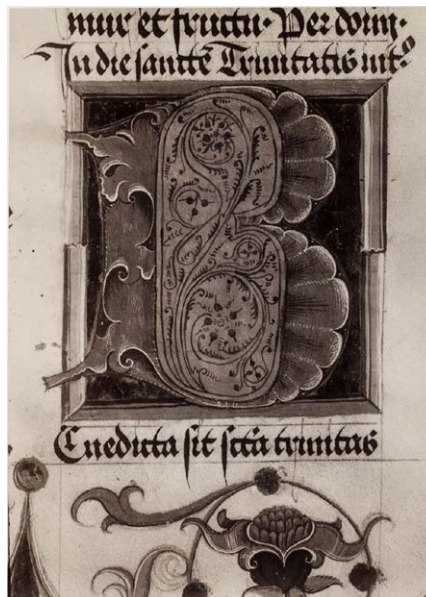 mur et fructu · Per dom̄ ·
In die sancte Trinitatis int°
B
Enedicta sit sctā trinitas